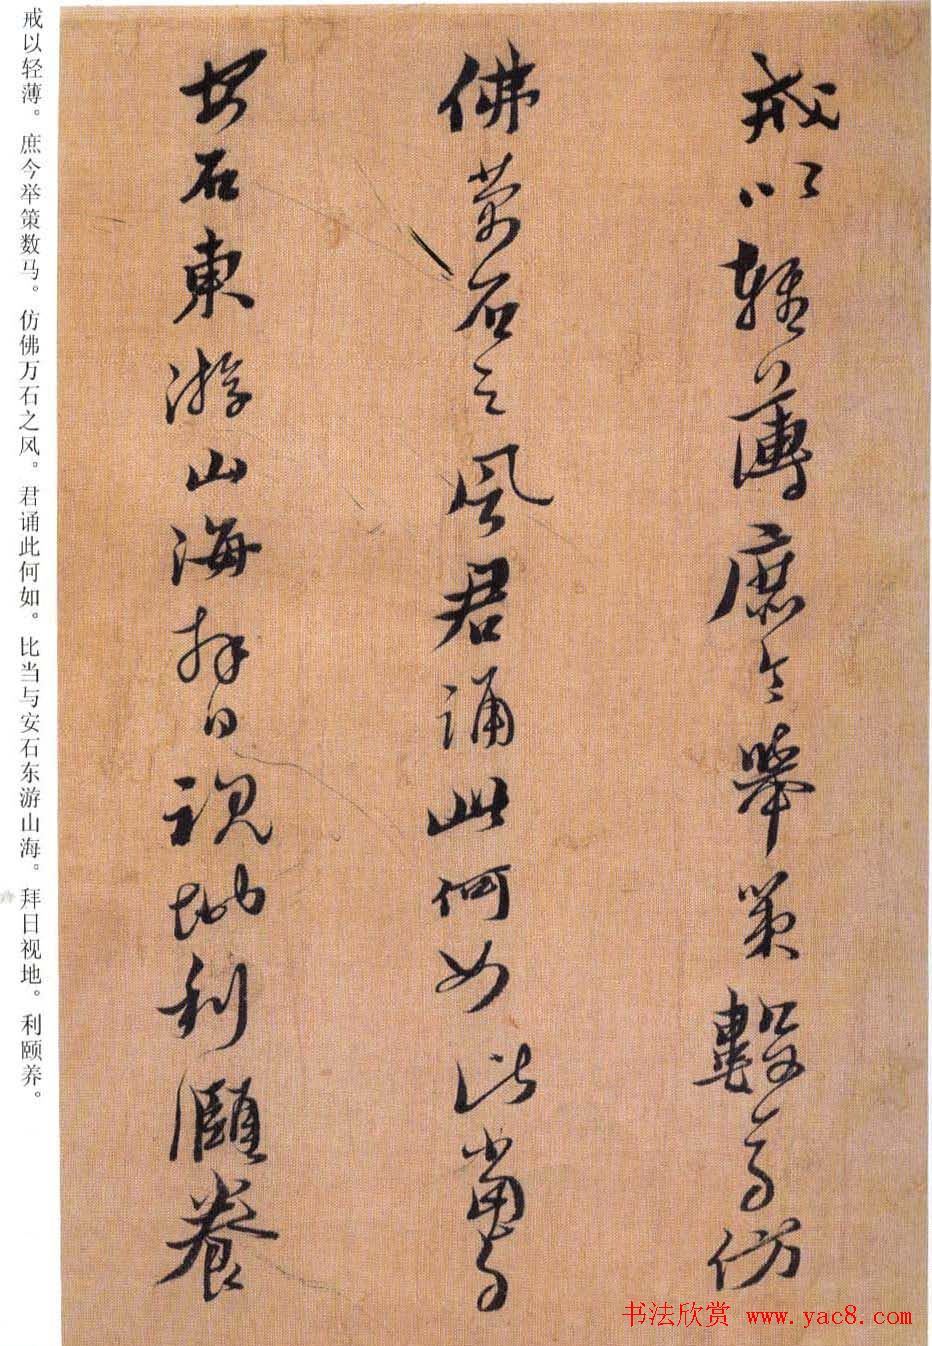 戒以輕薄庶今舉策數馬仿
佛萬石之風君誦此何如比當与
安石東游山海拜日視地利頤養
戒以轻薄。庶今举策数马。仿佛万石之风。君诵此何如。比当与安石东游山海。拜日视地。利颐养。
书法欣赏 www.yac8.com